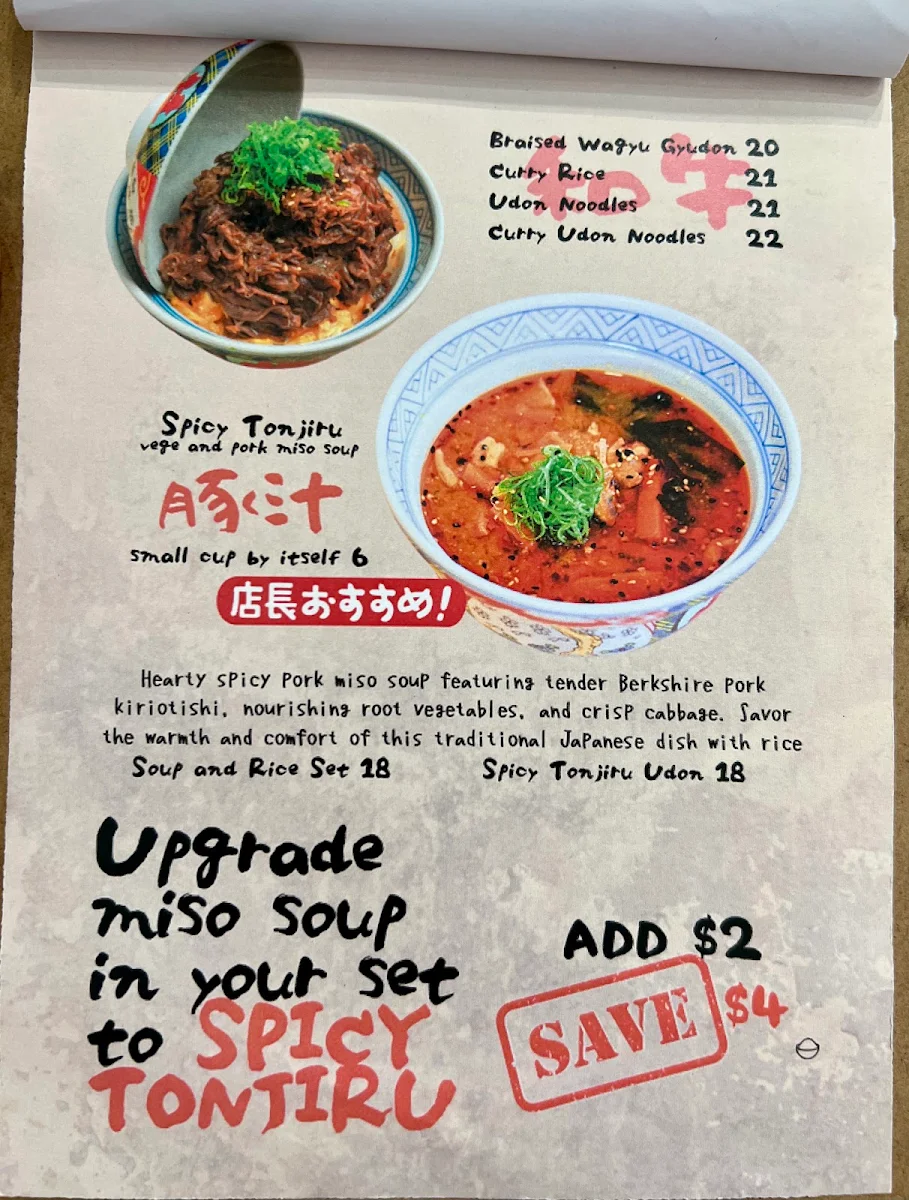 和牛
Braised Wagyu Gyudon 20
Curry Rice 21
Udon Noodles 21
Curry Udon Noodles 22
Spicy Tonjiru
vege and pork miso soup
豚汁
small cup by itself 6
店長おすすめ!
Hearty spicy pork miso soup featuring tender Berkshire pork
kiriotishi, nourishing root vegetables, and crisp cabbage. Savor
the warmth and comfort of this traditional Japanese dish with rice
Soup and Rice Set 18
Spicy Tonjiru Udon 18
Upgrade
miso soup
in your set
to SPICY
TONJIRU
ADD $2
SAVE $4